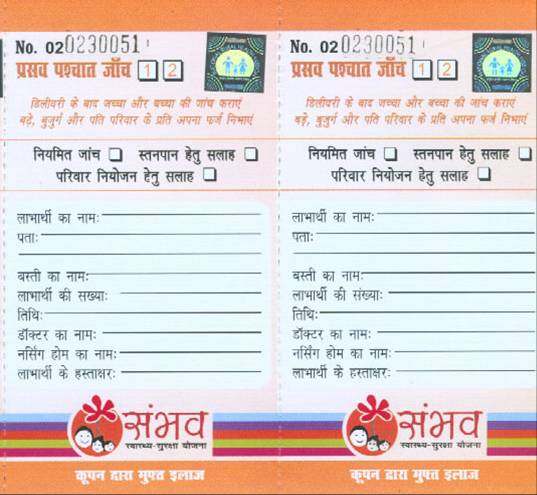 No. 02 0230051
प्रसव पश्चात जाँच 1 2
डिलीवरी के बाद जच्चा और बच्चा की जांच कराएं
बड़े, बुजुर्ग और पति परिवार के प्रति अपना फर्ज निभाएं
नियमित जांच स्तनपान हेतु सलाह
परिवार नियोजन हेतु सलाह
लाभार्थी का नामः
पताः
बस्ती का नामः
लाभार्थी की सख्याः
तिथिः
डॉक्टर का नामः
नर्सिंग होम का नामः
लाभार्थी के हस्ताक्षरः
संभव
स्वास्थ्य-सुरक्षा योजना
कूपन द्वारा मुफ्त इलाज
No. 02 0230051
प्रसव पश्चात जाँच 1 2
डिलीवरी के बाद जच्चा और बच्चा की जांच कराएं
बड़े, बुजुर्ग और पति परिवार के प्रति अपना फर्ज निभाएं
नियमित जांच स्तनपान हेतु सलाह
परिवार नियोजन हेतु सलाह
लाभार्थी का नामः
पताः
बस्ती का नामः
लाभार्थी की संख्याः
तिथिः
डॉक्टर का नामः
नर्सिंग होम का नामः
लाभार्थी के हस्ताक्षरः
संभव
स्वास्थ्य-सुरक्षा योजना
कूपन द्वारा मुफ्त इलाज